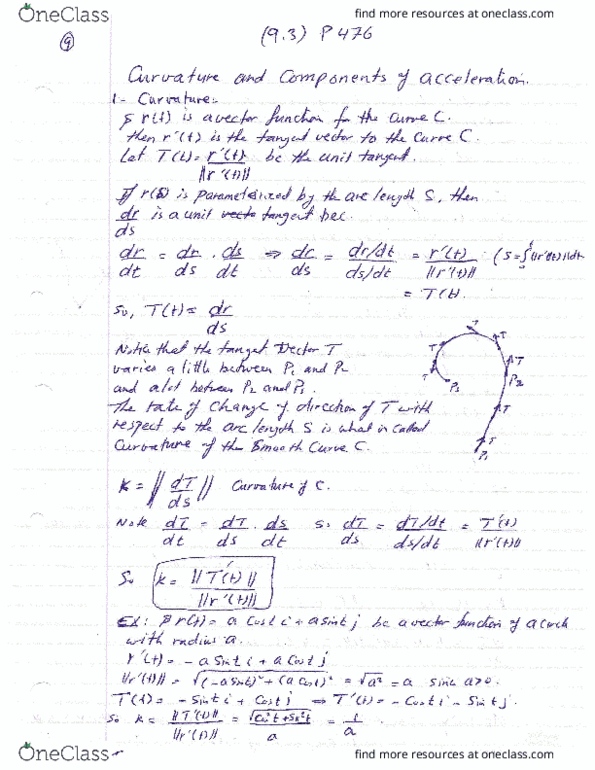 OneClass
find more resources at oneclass.com
9
(9.3) P 476
Curvature and Components of acceleration.
1- Curvature:-
If r(t) is a vector function for the curve C.
then r'(t) is the tangent vector to the curve C.
Let T(t) = r'(t) / ||r'(t)|| be the unit tangent.
If r(s) is parameterized by the arc length S, then
dr/ds is a unit tangent bec.
dr/dt = dr/ds . ds/dt ⇒ dr/ds = (dr/dt)/(ds/dt) = r'(t)/||r'(t)|| (S = ∫||r'(t)|| dt
= T(t).
So, T(t) = dr/ds
Notice that the tangent Vector T
varies a little between P1 and P2
and a lot between P2 and P3.
The rate of change of direction of T with
respect to the arc length S is what is called
Curvature of the Smooth Curve C.
T T T T T T T T
P3 P2 P1
K = || dT/ds || Curvature of C.
Note dT/dt = dT/ds . ds/dt So dT/ds = (dT/dt)/(ds/dt) = T'(t)/||r'(t)||
So K = ||T'(t)|| / ||r'(t)||
EX: If r(t) = a Cost i + a sint j be a vector function of a circle
with radius a.
r'(t) = - a Sint i + a Cost j
||r'(t)|| = √((-a Sint)² + (a Cost)²) = √a² = a since a>0.
T(t) = - Sint i + Cost j ⇒ T'(t) = - Cost i - Sint j.
So K = ||T'(t)|| / ||r'(t)|| = √(Cos²t + Sin²t) / a = 1/a.
OneClass
find more resources at oneclass.com